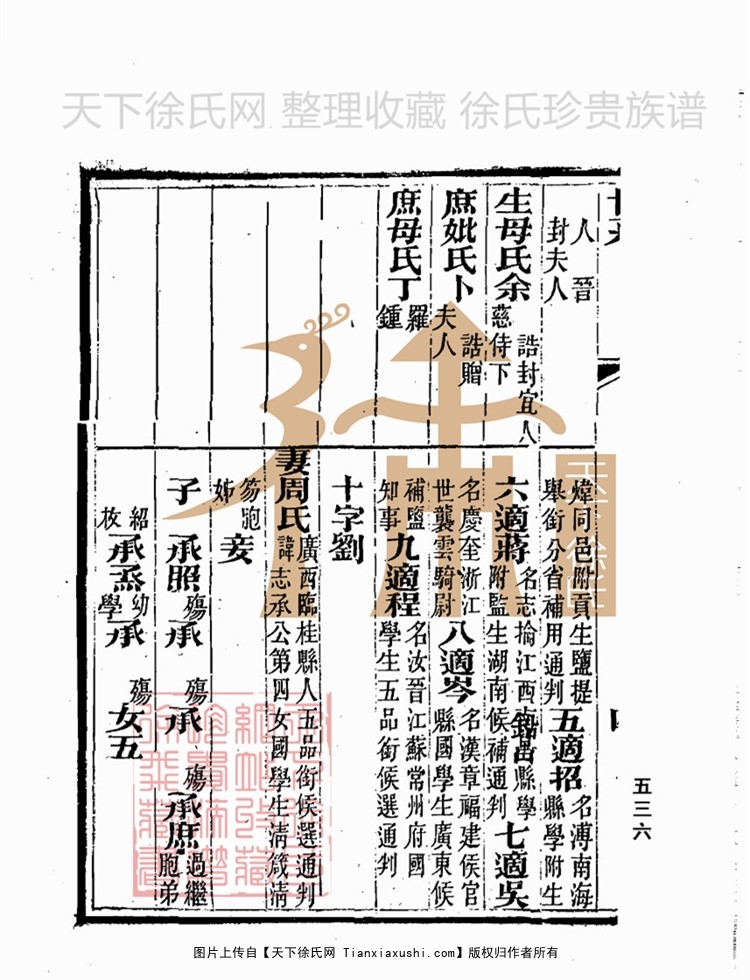 天下徐氏网 整理收藏 徐氏珍贵族谱
人 晉
封夫人
生母氏余 誥封宜人
慈侍下
庶妣氏卜 誥贈
夫人
庶母氏丁 羅
鍾
煒同邑附貢生鹽提
舉銜分省補用通判 五適招 名溥南海
縣學附生
六適蔣 名志掄江西縣學
附監生湖南候補通判 七適吳
名慶奎浙江
世襲雲騎尉 八適岑 名漢章福建侯官
縣國學生廣東候
補鹽
知事 九適程 名汝晉江蘇常州府國
學生五品銜候選通判
十字劉
妻周氏 廣西臨桂縣人五品銜候選通判
諱志承公第四女國學生清箴清
笏胞
姊 妾
子 承照 殤 承 殤 承 殤 承庶 過繼
胞弟
紹
枚 承烝 幼
學 承 殤 女五
五三六
天下徐氏
图片上传自【天下徐氏网 Tianxiaxushi.com】版权归作者所有